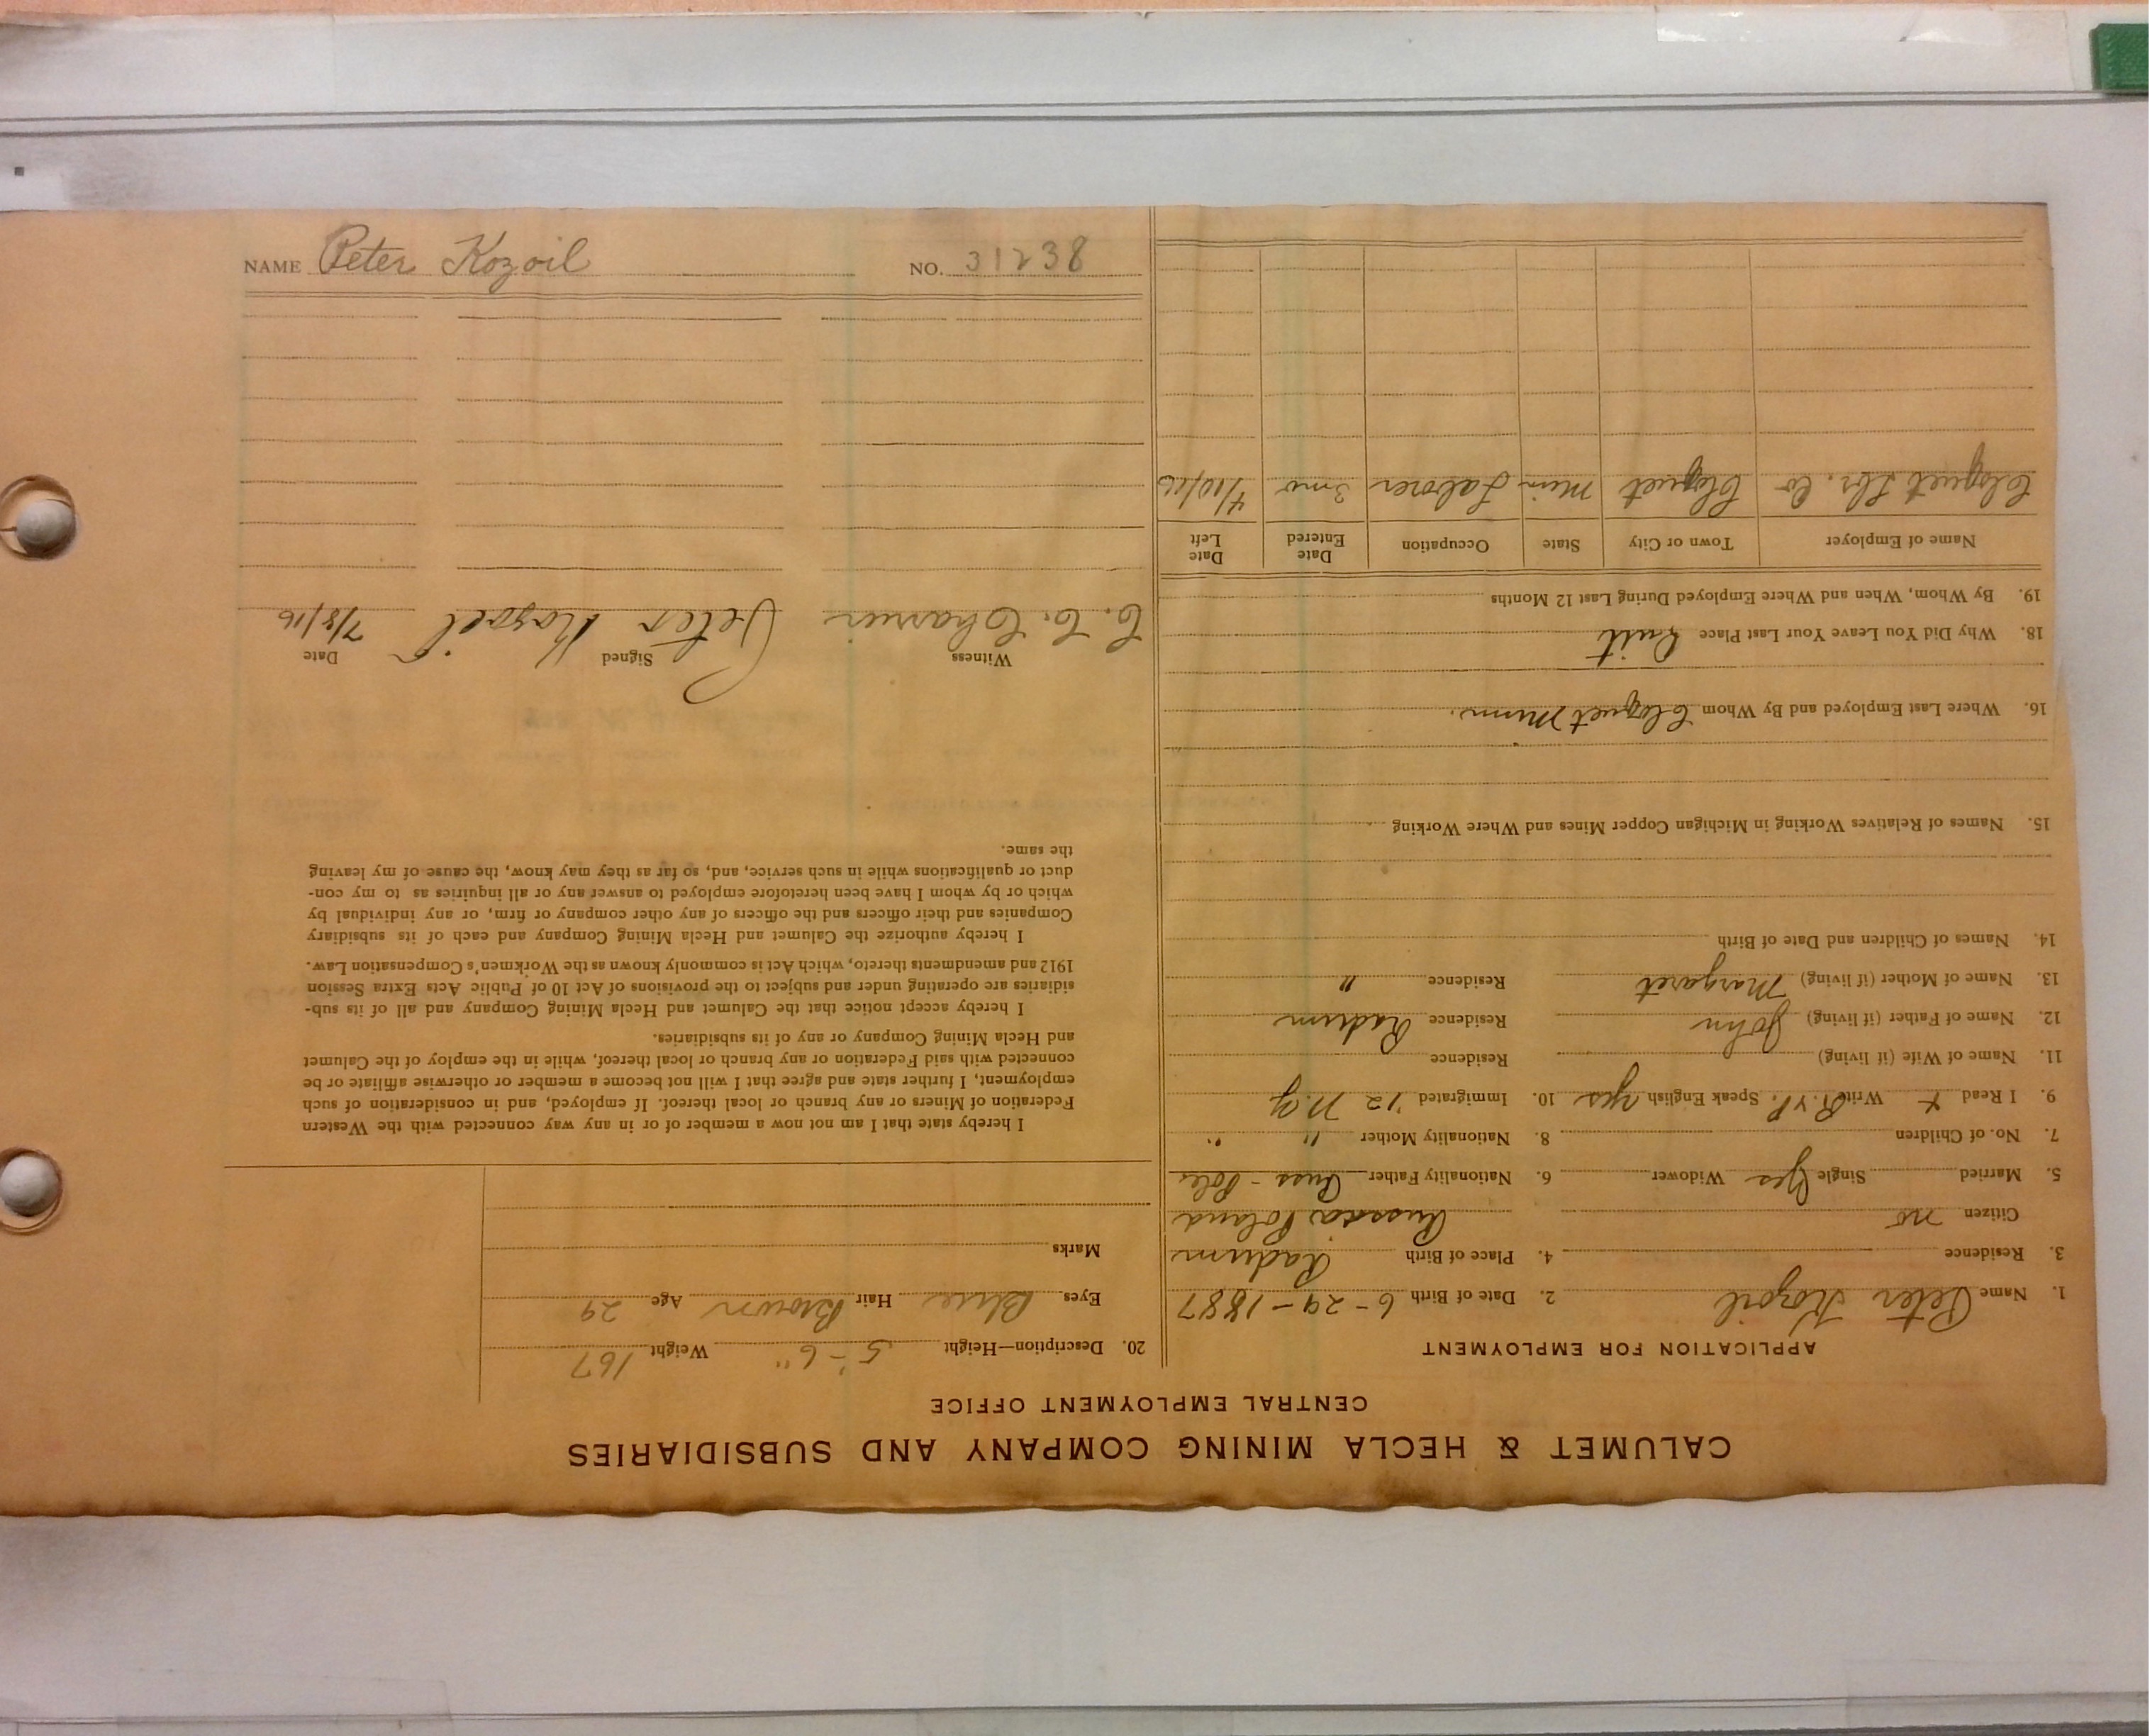 NAME Peter Kozoil NO. 31238
CALUMET & HECLA MINING COMPANY AND SUBSIDIARIES
CENTRAL EMPLOYMENT OFFICE
APPLICATION FOR EMPLOYMENT
1. Name Peter Kozoil 2. Date of Birth 6-29-1887
3. Residence 4. Place of Birth Radum
Citizen no Russia Poland
5. Married Single Yes Widower 6. Nationality Father Russ-Pole
7. No. of Children 8. Nationality Mother " "
9. I Read x Write R.&P. Speak English yes 10. Immigrated '12 N.Y
11. Name of Wife (if living) Residence
12. Name of Father (if living) John Residence Radum
13. Name of Mother (if living) Margaret Residence "
14. Names of Children and Date of Birth
15. Names of Relatives Working in Michigan Copper Mines and Where Working
16. Where Last Employed and By Whom Cloquet Minn.
18. Why Did You Leave Your Last Place Quit
19. By Whom, When and Where Employed During Last 12 Months
Name of Employer Town or City State Occupation Date Entered Date Left
Cloquet Lbr. Co Cloquet Minn Laborer 3 mo 4/10/16
20. Description—Height 5'-6" Weight 167
Eyes Blue Hair Brown Age 29
Marks
I hereby state that I am not now a member of or in any way connected with the Western
Federation of Miners or any branch or local thereof. If employed, and in consideration of such
employment, I further state and agree that I will not become a member or otherwise affiliate or be
connected with said Federation or any branch or local thereof, while in the employ of the Calumet
and Hecla Mining Company or any of its subsidiaries.
I hereby accept notice that the Calumet and Hecla Mining Company and all of its sub-
sidiaries are operating under and subject to the provisions of Act 10 of Public Acts Extra Session
1912 and amendments thereto, which Act is commonly known as the Workmen's Compensation Law.
I hereby authorize the Calumet and Hecla Mining Company and each of its subsidiary
Companies and their officers and the officers of any other company or firm, or any individual by
which or by whom I have been heretofore employed to answer any or all inquiries as to my con-
duct or qualifications while in such service, and, so far as they may know, the cause of my leaving
the same.
Witness Signed Date
C. C. Peter Kozoil 7/8/16